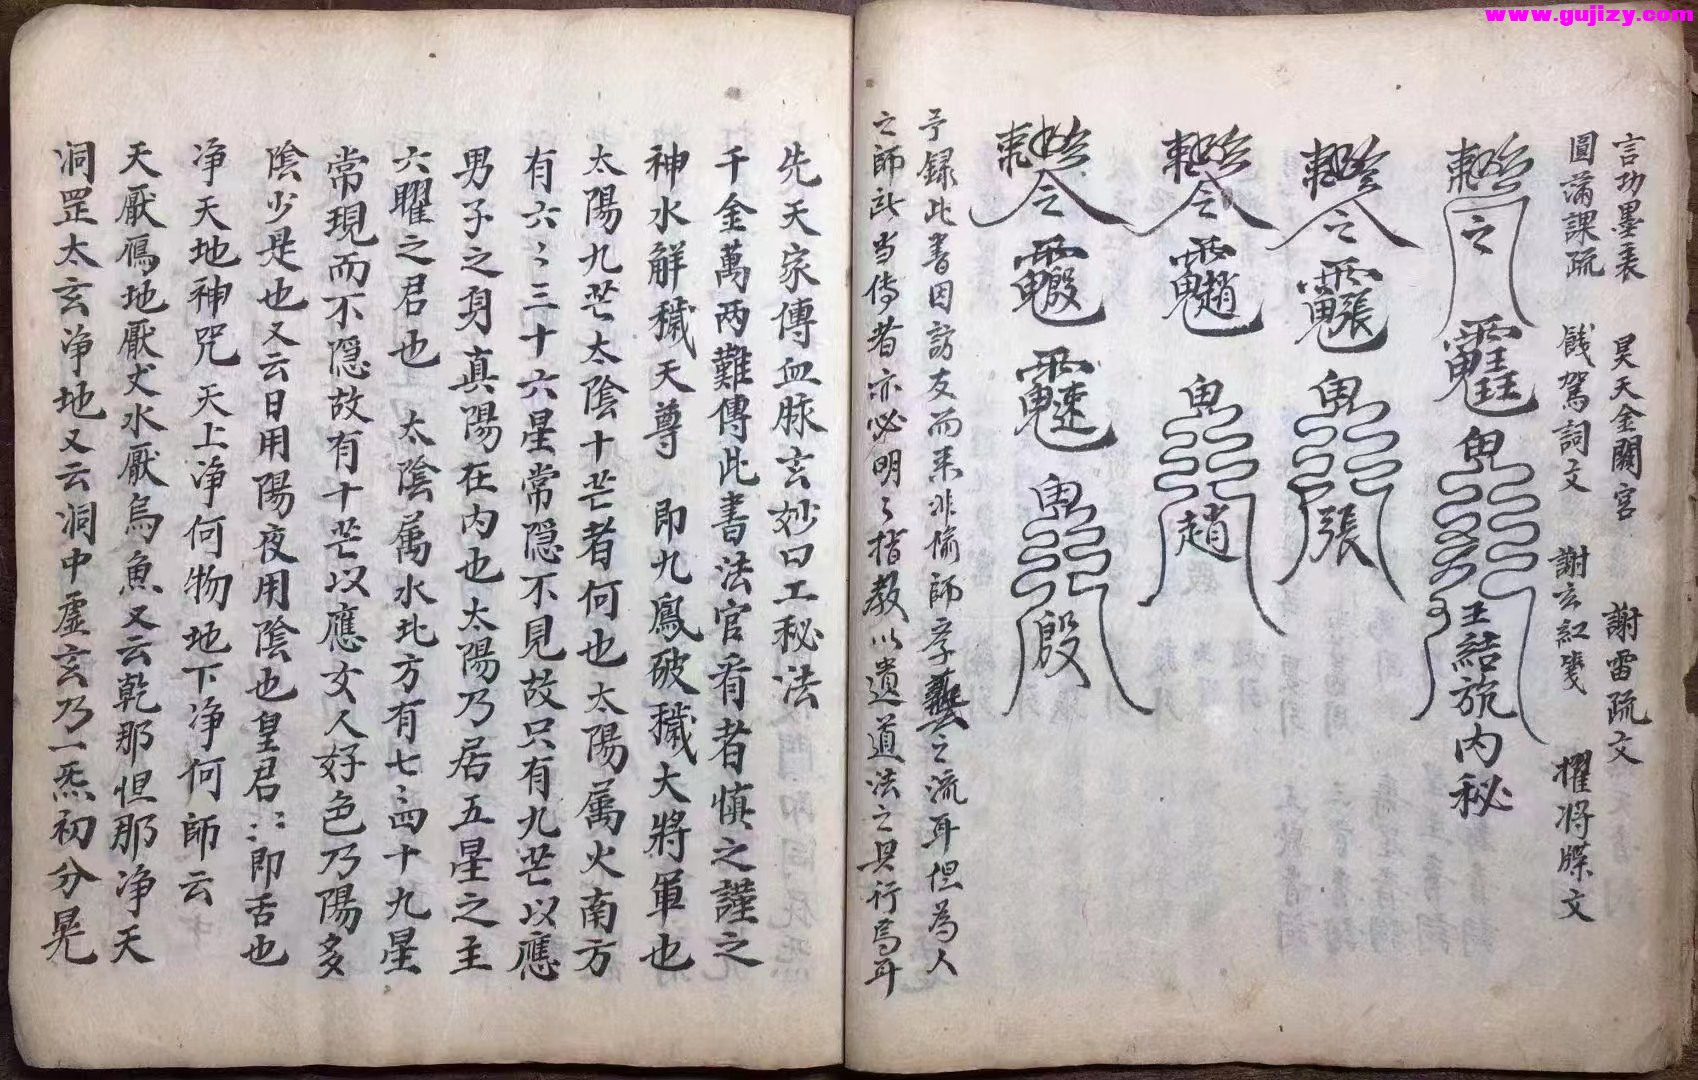 www.gujizy.com
言功墨表 昊天金闕宮 謝雷疏文
圓滿課疏 餞駕詞文 謝玄紅箋 擢將牒文
之
王結旅內秘
令
張
令
趙
令
殷
予録此書因訪友而来非偷師孝之流耳但為人
之師此当传者亦必明〻指教以遺道法之具行焉耳
先天家傳血脉玄妙口工秘法
千金萬两難傳此書法官看者慎之謹之
神水解穢天尊 即九鳳破穢大將軍也
太陽九芒太陰十芒者何也太陽属火南方
有六〻三十六星常隐不見故只有九芒以應
男子之身真陽在内也太陽乃居五星之主
六曜之君也 太陰属水北方有七〻四十九星
常現而不隐故有十芒以應女人好色乃陽多
陰少是也又云日用陽夜用陰也皇君〻〻即舌也
净天地神咒 天上净何物地下净何師云
天厭鴈地厭犬水厭烏魚又云乾那怛那净天
洞罡太玄净地又云洞中虛玄乃一炁初分晃